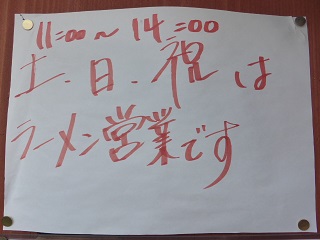 11:00～14:00
土.日.祝は
ラーメン営業です